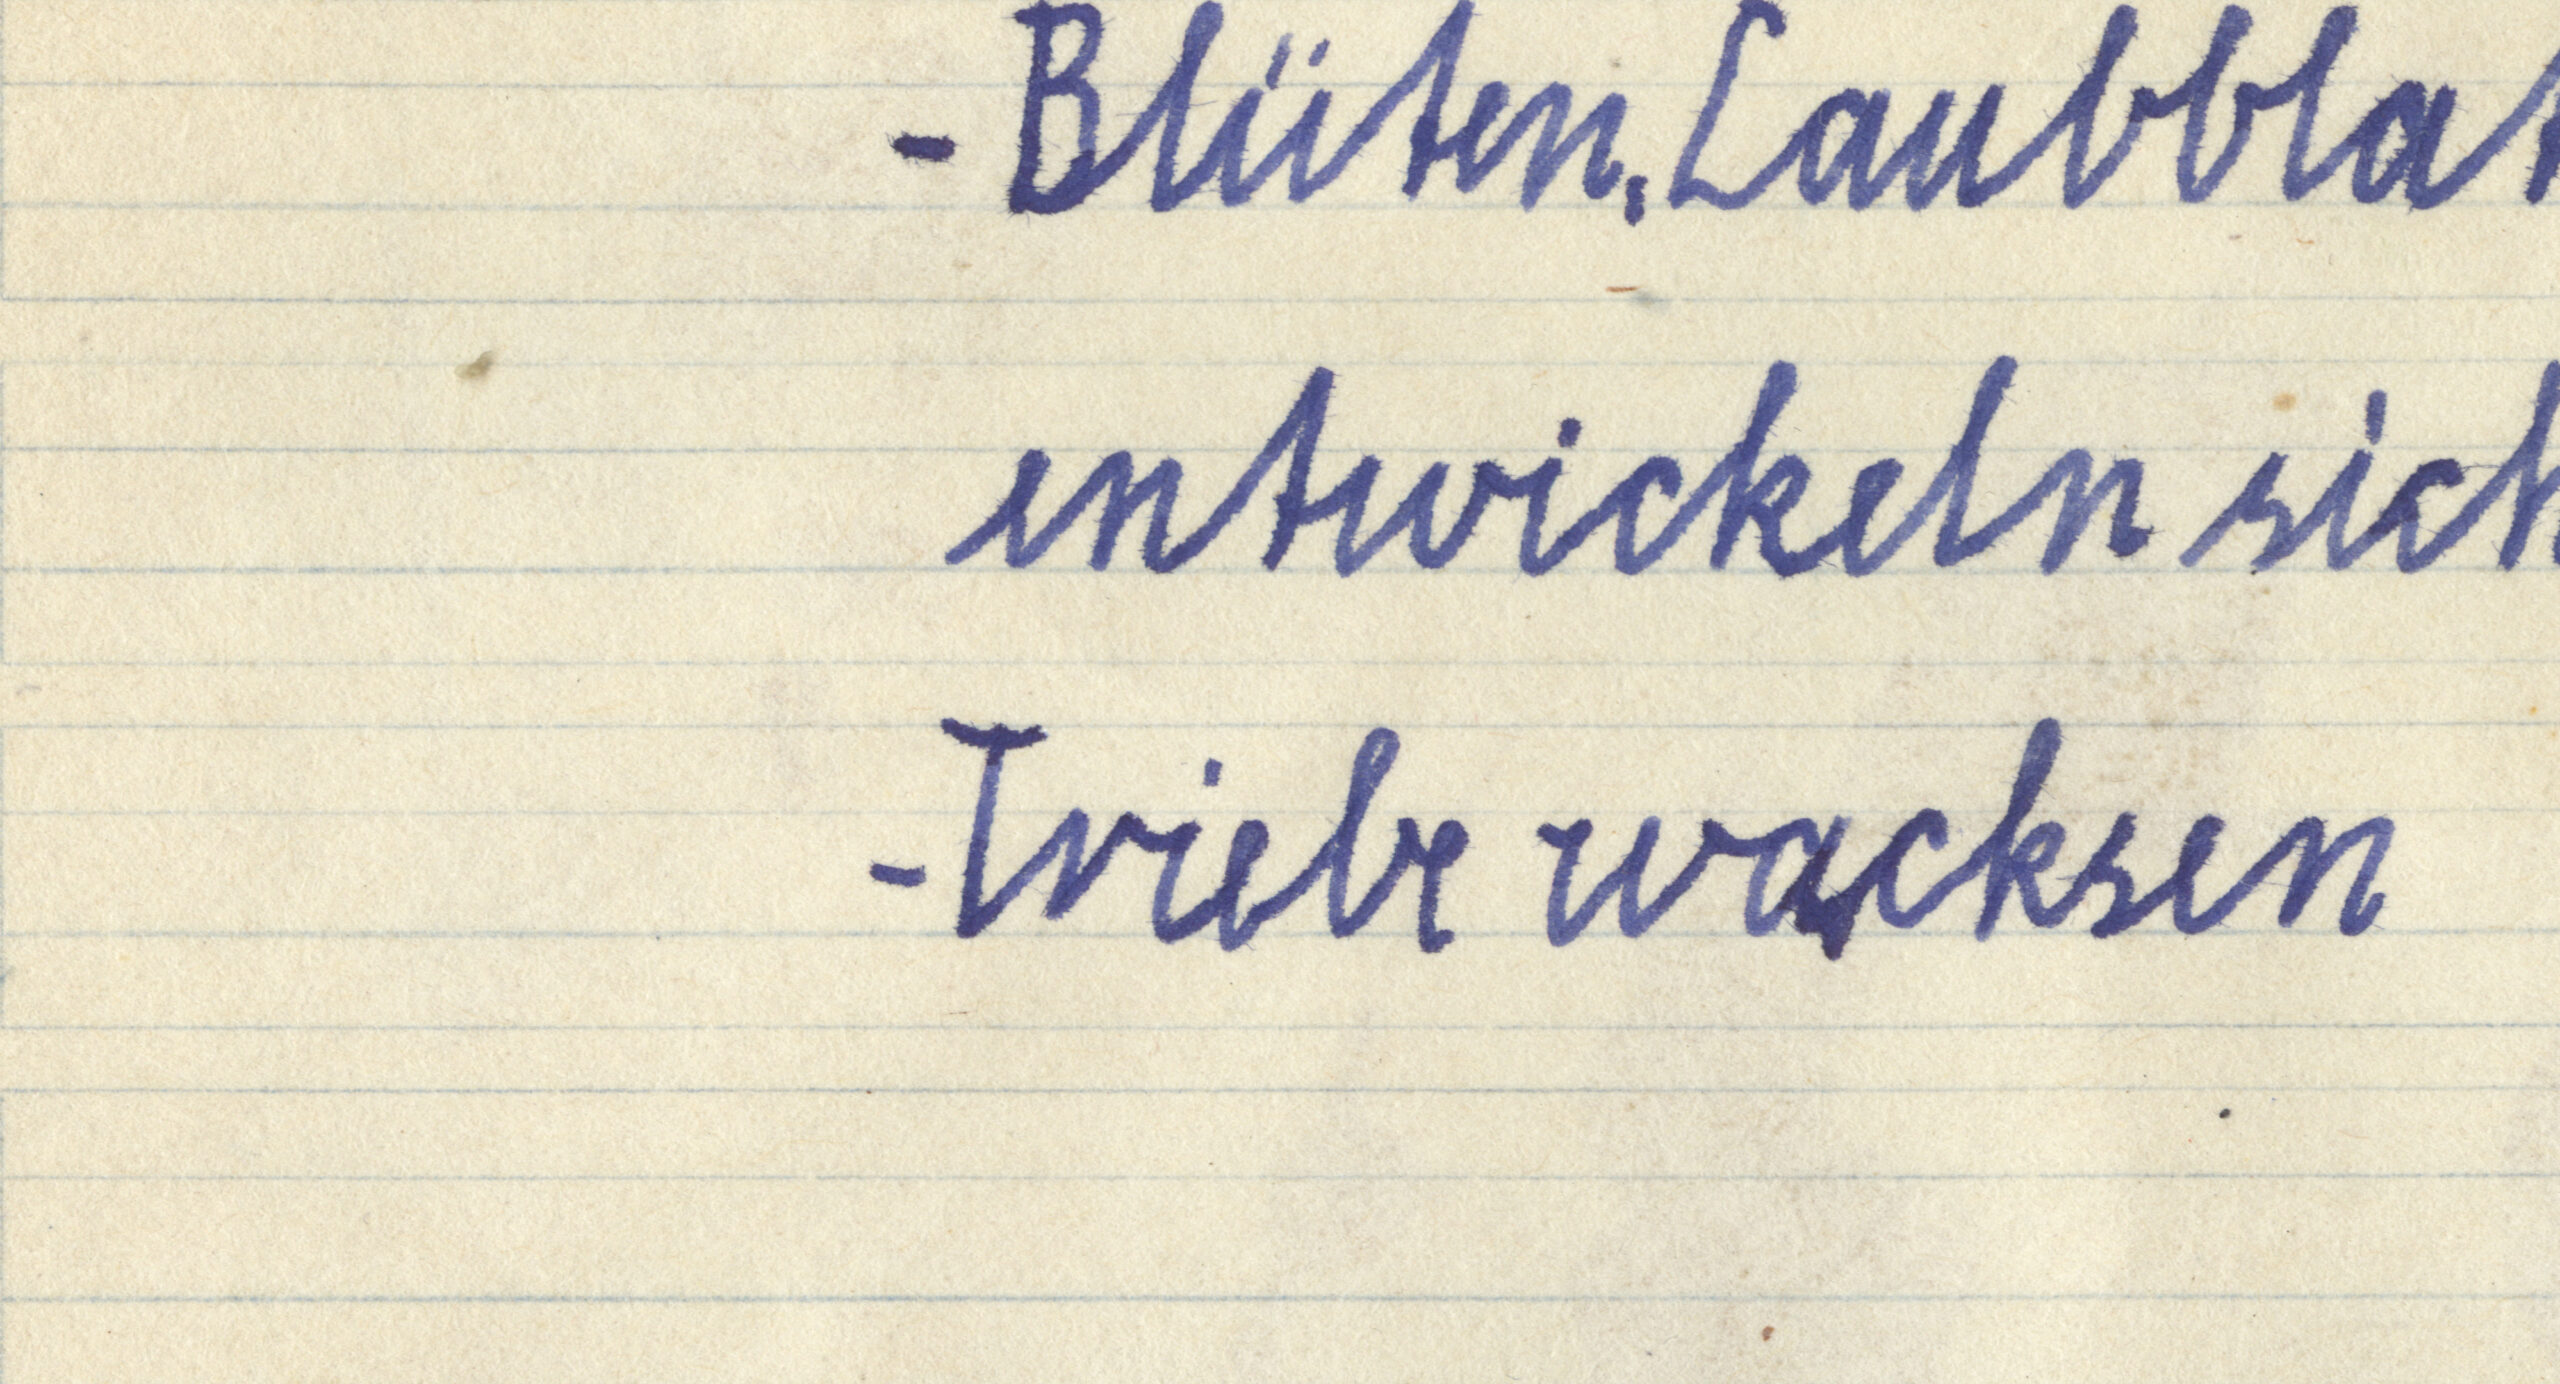 - Blüten, Laubblat
entwickeln sich
- Triebe wacksen